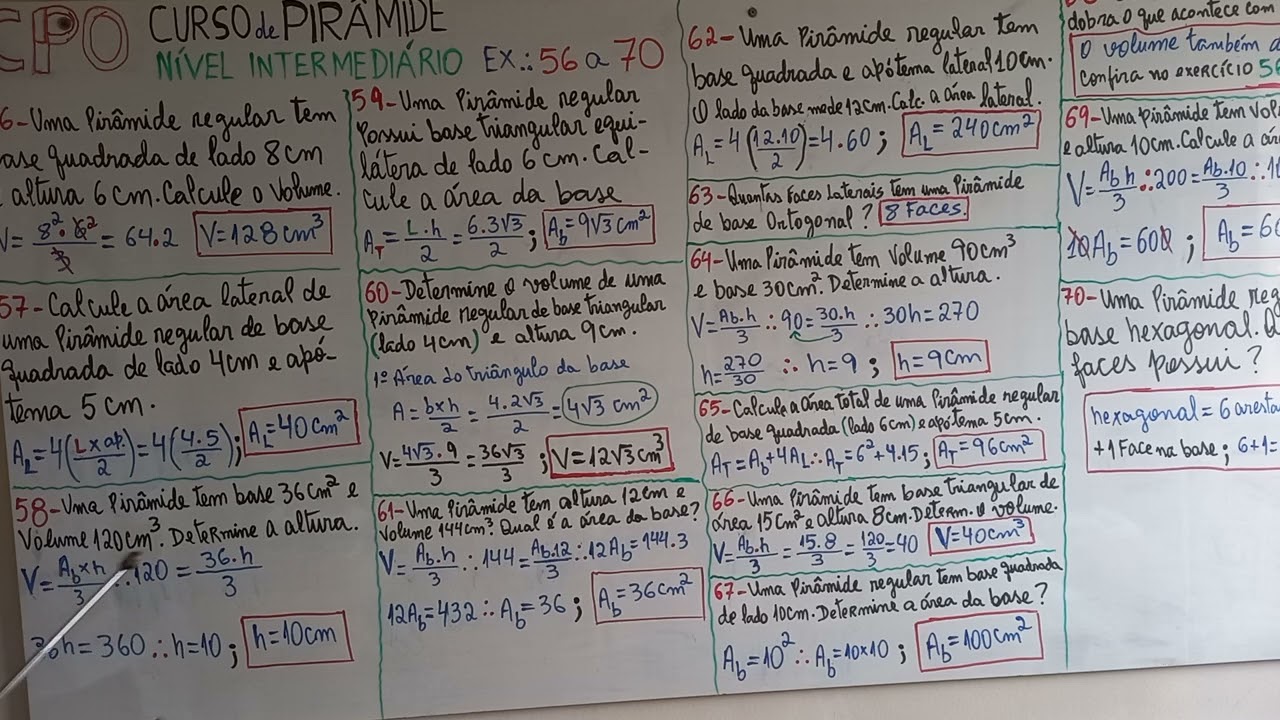 CPO CURSO de PIRÂMIDE
NÍVEL INTERMEDIÁRIO EX.: 56 a 70
6-Uma Pirâmide regular tem
ase quadrada de lado 8cm
altura 6cm. Calcule o volume.
V= 8². 6² / 3 = 64.2 V=128cm³
57-Calcule a área lateral de
uma Pirâmide regular de base
quadrada de lado 4cm e apó-
tema 5cm.
A_L=4(L×ap./2)=4(4.5/2); A_L=40cm²
58-Uma Pirâmide tem base 36cm² e
Volume 120cm³. Determine a altura.
V= Ab×h/3 ∴ 120 = 36.h/3
36h=360 ∴ h=10; h=10cm
59-Uma Pirâmide regular
Possui base triangular equi-
látera de lado 6cm. Cal-
cule a área da base
A_T= L.h/2 = 6.3√3/2; Ab=9√3cm²
60-Determine o volume de uma
Pirâmide regular de base triangular
(lado 4cm) e altura 9cm.
1º Área do triângulo da base
A= b×h/2 = 4.2√3/2 = 4√3 cm²
V= 4√3.9/3 = 36√3/3; V=12√3cm³
61-Uma Pirâmide tem altura 12cm e
volume 144cm³. Qual é a área da base?
V= Ab.h/3 ∴ 144= Ab.12/3 ∴ 12Ab=144.3
12Ab=432 ∴ Ab=36; Ab=36cm²
62-Uma Pirâmide regular tem
base quadrada e apótema lateral 10cm.
O lado da base mede 12cm. Calc. a área lateral.
A_L=4(12.10/2)=4.60; A_L=240cm²
63-Quantas Faces Laterais tem uma Pirâmide
de base Ortogonal? 8 Faces.
64-Uma Pirâmide tem Volume 90cm³
e base 30cm². Determine a altura.
V= Ab.h/3 ∴ 90= 30.h/3 ∴ 30h=270
h= 270/30 ∴ h=9; h=9cm
65-Calcule a área total de uma Pirâmide regular
de base quadrada (lado 6cm) e apótema 5cm.
A_T=Ab+4A_L ∴ A_T=6²+4.15; A_T=96cm²
66-Uma Pirâmide tem base triangular de
área 15cm² e altura 8cm. Determ. o volume.
V= Ab.h/3 = 15.8/3 = 120/3 =40 V=40cm³
67-Uma Pirâmide regular tem base quadrada
de lado 10cm. Determine a área da base?
Ab=10² ∴ Ab=10×10; Ab=100cm²
dobra o que acontece com
O volume também
confira no exercício 56
69-Uma pirâmide tem vol
e altura 10cm. Calcule a ár
V= Ab h/3 ∴ 200= Ab.10/3 ∴ 1
10Ab=600; Ab=6
70-Uma Pirâmide reg
base hexagonal.
faces possui?
hexagonal = 6 aresta
+1 Face na base; 6+1=